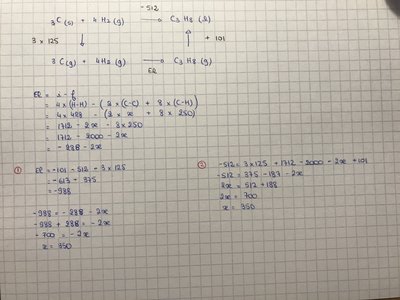 -512
3C(s) + 4H₂(g) → C₃H₈(l)
3 x 125 ↓ ↑ + 101
3C(g) + 4H₂(g) → C₃H₈(g)
ER
ER = r - f
= 4x(H-H) - (2x(C-C) + 8x(C-H))
= 4x428 - (2 x x + 8 x 250)
= 1712 - 2x - 8x250
= 1712 - 2000 - 2x
= - 288 - 2x
① ER = -101 - 512 - 3 x 125
= -613 - 375
= -988
-988 = - 288 - 2x
-988 + 288 = - 2x
- 700 = - 2x
x = 350
② -512 = 3x125 + 1712 - 2000 - 2x + 101
-512 = 375 - 187 - 2x
2x = 512 + 188
2x = 700
x = 350